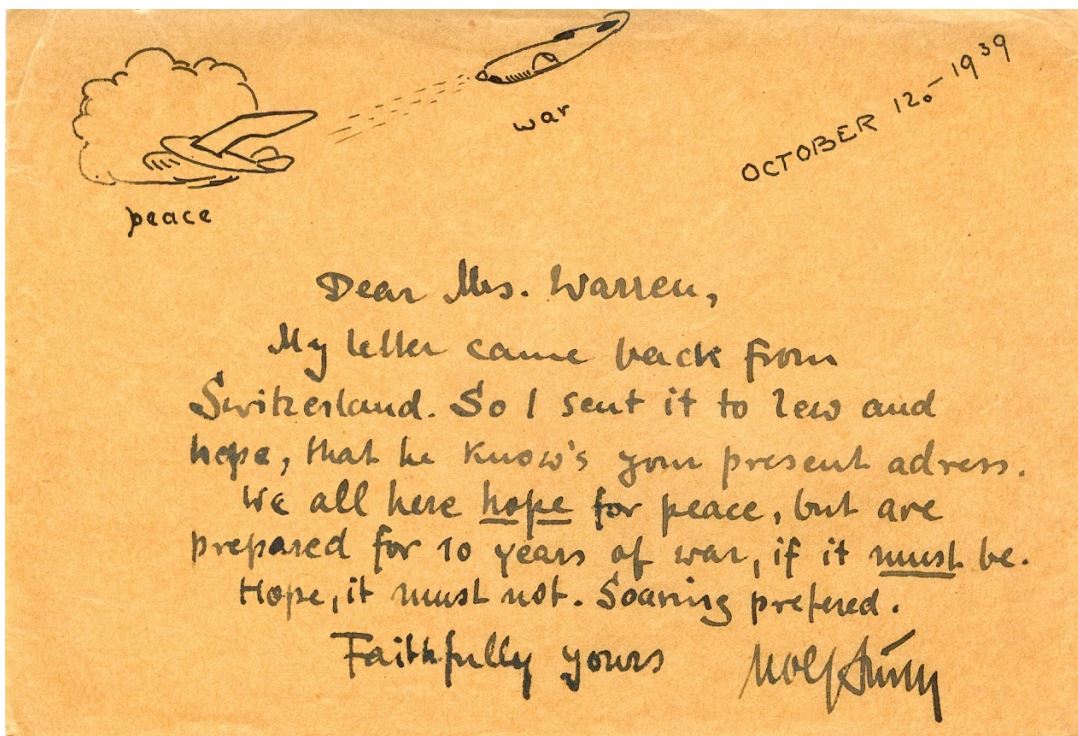 war
OCTOBER 12.-1939
peace
Dear Mrs. Warren,
My letter came back from
Switzerland. So I sent it to Lew and
hope, that he know's your present adress.
We all here hope for peace, but are
prepared for 10 years of war, if it must be.
Hope, it must not. Soaring prefered.
Faithfully yours